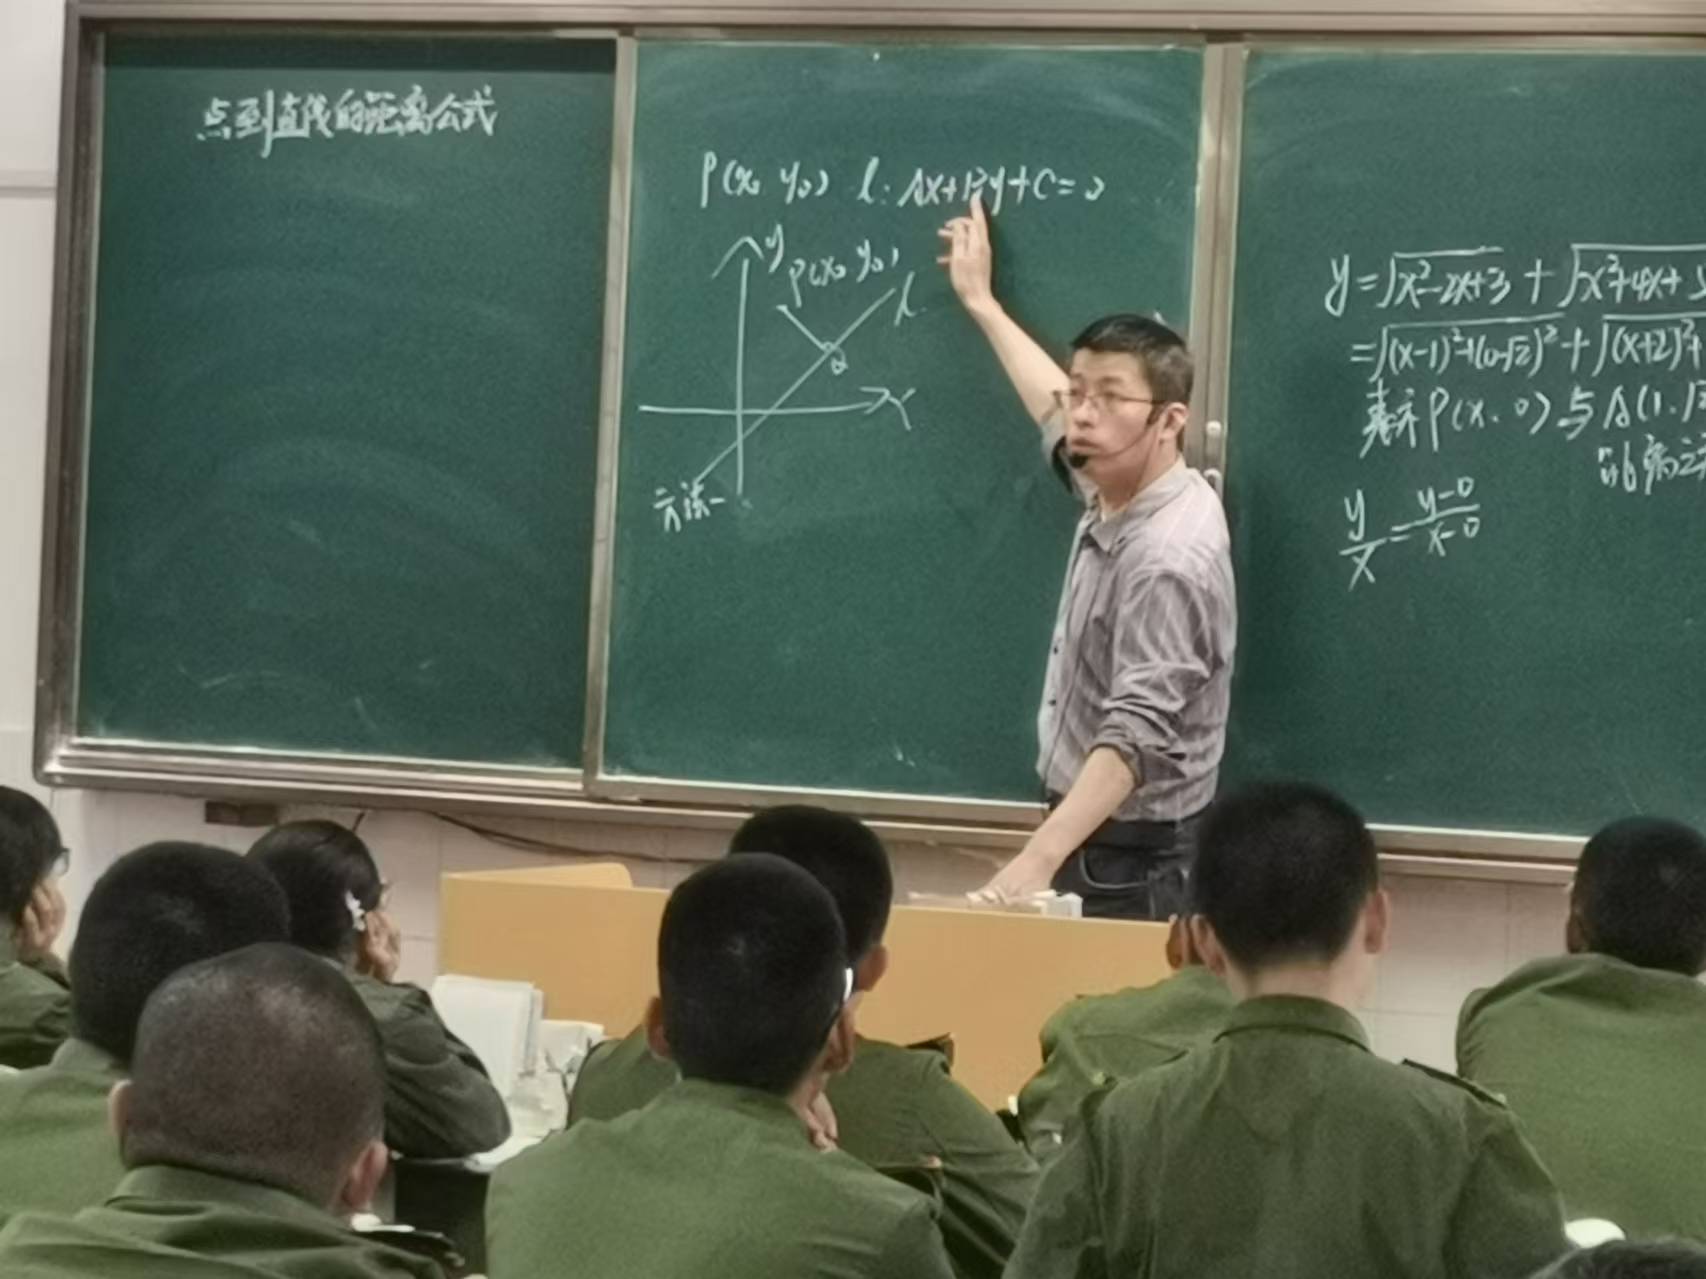 点到直线的距离公式
P(x₀ y₀) l: Ax+By+C=0
y
P(x₀ y₀)
l
Q
x
方法一
y=√x²-2x+3 + √x²+4x+5
=√(x-1)²+(0-√2)² + √(x+2)²+
表示P(x,0)与A(1,√2
的距离
y/x = y-0/x-0